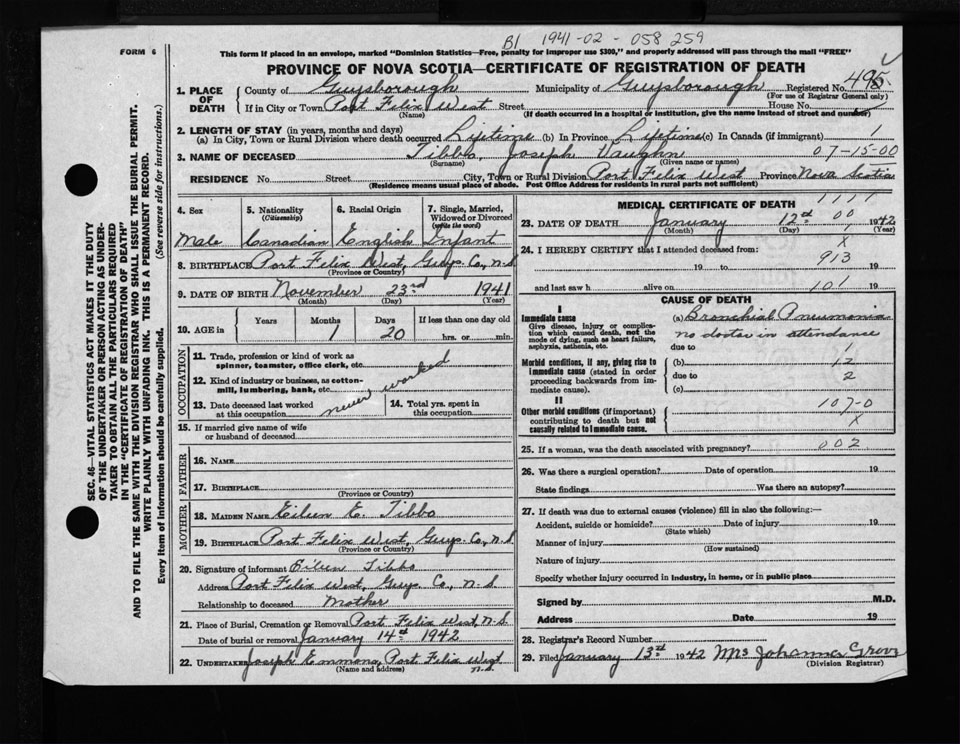 B1 1941-02-058 259
FORM 6
This form if placed in an envelope, marked "Dominion Statistics—Free, penalty for improper use $300," and properly addressed will pass through the mail "FREE"
PROVINCE OF NOVA SCOTIA—CERTIFICATE OF REGISTRATION OF DEATH
1. PLACE OF DEATH County of Guysborough Municipality of Guysborough Registered No. 495
(For use of Registrar General only)
If in City or Town Port Felix West Street House No.
(Name) (If death occurred in a hospital or institution, give the name instead of street and number)
2. LENGTH OF STAY (in years, months and days)
(a) In City, Town or Rural Division where death occurred Lifetime (b) In Province Lifetime (c) In Canada (if immigrant) 1
3. NAME OF DECEASED Tibbo, Joseph Vaughn 07-15-00
(Surname) (Given name or names)
RESIDENCE No. Street City, Town or Rural Division Port Felix West Province Nova Scotia
(Residence means usual place of abode. Post Office Address for residents in rural parts not sufficient)
SEC. 46—VITAL STATISTICS ACT MAKES IT THE DUTY
OF THE UNDERTAKER OR PERSON ACTING AS UNDER-
TAKER TO OBTAIN ALL THE PARTICULARS REQUIRED
IN THE "CERTIFICATE OF REGISTRATION OF DEATH"
AND TO FILE THE SAME WITH THE DIVISION REGISTRAR WHO SHALL ISSUE THE BURIAL PERMIT.
WRITE PLAINLY WITH UNFADING INK. THIS IS A PERMANENT RECORD.
Every item of information should be carefully supplied. (See reverse side for instructions.)
4. Sex 5. Nationality (Citizenship) 6. Racial Origin 7. Single, Married, Widowed or Divorced (write the word)
Male Canadian English Infant
8. BIRTHPLACE Port Felix West, Guys. Co., N.S.
(Province or Country)
9. DATE OF BIRTH November 23rd 1941
(Month) (Day) (Year)
10. AGE in Years Months Days If less than one day old
1 20 hrs. or min.
OCCUPATION
11. Trade, profession or kind of work as
spinner, teamster, office clerk, etc.
12. Kind of industry or business, as cotton-
mill, lumbering, bank, etc.
never worked
13. Date deceased last worked at this occupation 14. Total yrs. spent in this occupation
15. If married give name of wife
or husband of deceased
FATHER
16. NAME
17. BIRTHPLACE
(Province or Country)
MOTHER
18. MAIDEN NAME Eileen E. Tibbo
19. BIRTHPLACE Port Felix West, Guys. Co., N.S.
(Province or Country)
20. Signature of informant Eileen Tibbo
Address Port Felix West, Guys. Co., N.S.
Relationship to deceased Mother
21. Place of Burial, Cremation or Removal Port Felix West, N.S.
Date of burial or removal January 14th 1942
22. UNDERTAKER Joseph Emmons, Port Felix West N.S.
(Name and address)
MEDICAL CERTIFICATE OF DEATH 1111
00
23. DATE OF DEATH January 12th 1942
(Month) (Day) (Year)
24. I HEREBY CERTIFY that I attended deceased from: X
19 to 913 19
and last saw h alive on 101 19
CAUSE OF DEATH
Immediate cause (a) Bronchial Pneumonia
Give disease, injury or complica-
tion which caused death, not the
mode of dying, such as heart failure,
asphyxia, asthenia, etc.
no doctor in attendance
due to 1
Morbid conditions, if any, giving rise to
immediate cause (stated in order
proceeding backwards from im-
mediate cause).
(b) 12
due to 2
(c)
II
Other morbid conditions (if important)
contributing to death but not
causally related to immediate cause.
107-0
X
25. If a woman, was the death associated with pregnancy? 002
26. Was there a surgical operation? Date of operation 19
State findings Was there an autopsy?
27. If death was due to external causes (violence) fill in also the following:—
Accident, suicide or homicide? Date of injury 19
(State which)
Manner of injury
(How sustained)
Nature of injury
Specify whether injury occurred in industry, in home, or in public place
Signed by M.D.
Address Date 19
28. Registrar's Record Number
29. Filed January 13th 1942 Mrs Johanna Grove
(Division Registrar)